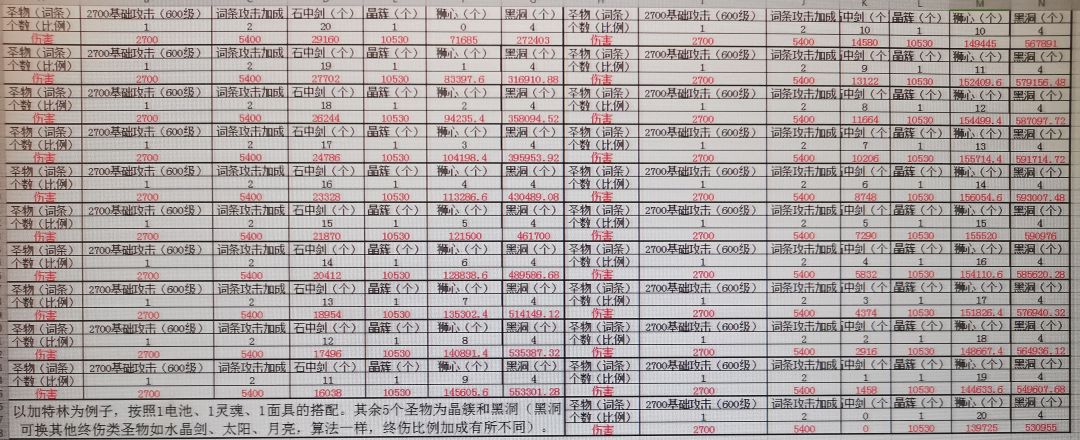 圣物（词条） 2700基础攻击（600级） 词条攻击加成 石中剑（个） 晶簇（个） 狮心（个） 黑洞（个）
个数（比例） 1 2 20 1 0 4
伤害 2700 5400 29160 10530 71685 272403
圣物（词条） 2700基础攻击（600级） 词条攻击加成 石中剑（个） 晶簇（个） 狮心（个） 黑洞（个）
个数（比例） 1 2 19 1 1 4
伤害 2700 5400 27702 10530 83397.6 316910.88
圣物（词条） 2700基础攻击（600级） 词条攻击加成 石中剑（个） 晶簇（个） 狮心（个） 黑洞（个）
个数（比例） 1 2 18 1 2 4
伤害 2700 5400 26244 10530 94235.4 358094.52
圣物（词条） 2700基础攻击（600级） 词条攻击加成 石中剑（个） 晶簇（个） 狮心（个） 黑洞（个）
个数（比例） 1 2 17 1 3 4
伤害 2700 5400 24786 10530 104198.4 395953.92
圣物（词条） 2700基础攻击（600级） 词条攻击加成 石中剑（个） 晶簇（个） 狮心（个） 黑洞（个）
个数（比例） 1 2 16 1 4 4
伤害 2700 5400 23328 10530 113286.6 430489.08
圣物（词条） 2700基础攻击（600级） 词条攻击加成 石中剑（个） 晶簇（个） 狮心（个） 黑洞（个）
个数（比例） 1 2 15 1 5 4
伤害 2700 5400 21870 10530 121500 461700
圣物（词条） 2700基础攻击（600级） 词条攻击加成 石中剑（个） 晶簇（个） 狮心（个） 黑洞（个）
个数（比例） 1 2 14 1 6 4
伤害 2700 5400 20412 10530 128838.6 489586.68
圣物（词条） 2700基础攻击（600级） 词条攻击加成 石中剑（个） 晶簇（个） 狮心（个） 黑洞（个）
个数（比例） 1 2 13 1 7 4
伤害 2700 5400 18954 10530 135302.4 514149.12
圣物（词条） 2700基础攻击（600级） 词条攻击加成 石中剑（个） 晶簇（个） 狮心（个） 黑洞（个）
个数（比例） 1 2 12 1 8 4
伤害 2700 5400 17496 10530 140891.4 535387.32
圣物（词条） 2700基础攻击（600级） 词条攻击加成 石中剑（个） 晶簇（个） 狮心（个） 黑洞（个）
个数（比例） 1 2 11 1 9 4
伤害 2700 5400 16038 10530 145605.6 553301.28
以加特林为例子，按照1电池、1灵魂、1面具的搭配。其余5个圣物为晶簇和黑洞（黑洞
可换其他终伤类圣物如水晶剑、太阳、月亮，算法一样，终伤比例加成有所不同）。
圣物（词条） 2700基础攻击（600级） 词条攻击加成 中剑（个 晶簇（个） 狮心（个） 黑洞（个）
个数（比例） 1 2 10 1 10 4
伤害 2700 5400 14580 10530 149445 567891
圣物（词条） 2700基础攻击（600级） 词条攻击加成 中剑（个 晶簇（个） 狮心（个） 黑洞（个）
个数（比例） 1 2 9 1 11 4
伤害 2700 5400 13122 10530 152409.6 579156.48
圣物（词条） 2700基础攻击（600级） 词条攻击加成 中剑（个 晶簇（个） 狮心（个） 黑洞（个）
个数（比例） 1 2 8 1 12 4
伤害 2700 5400 11664 10530 154499.4 587097.72
圣物（词条） 2700基础攻击（600级） 词条攻击加成 中剑（个 晶簇（个） 狮心（个） 黑洞（个）
个数（比例） 1 2 7 1 13 4
伤害 2700 5400 10206 10530 155714.4 591714.72
圣物（词条） 2700基础攻击（600级） 词条攻击加成 中剑（个 晶簇（个） 狮心（个） 黑洞（个）
个数（比例） 1 2 6 1 14 4
伤害 2700 5400 8748 10530 156054.6 593007.48
圣物（词条） 2700基础攻击（600级） 词条攻击加成 中剑（个 晶簇（个） 狮心（个） 黑洞（个）
个数（比例） 1 2 5 1 15 4
伤害 2700 5400 7290 10530 155520 590976
圣物（词条） 2700基础攻击（600级） 词条攻击加成 中剑（个 晶簇（个） 狮心（个） 黑洞（个）
个数（比例） 1 2 4 1 16 4
伤害 2700 5400 5832 10530 154110.6 585620.28
圣物（词条） 2700基础攻击（600级） 词条攻击加成 中剑（个 晶簇（个） 狮心（个） 黑洞（个）
个数（比例） 1 2 3 1 17 4
伤害 2700 5400 4374 10530 151826.4 576940.32
圣物（词条） 2700基础攻击（600级） 词条攻击加成 中剑（个 晶簇（个） 狮心（个） 黑洞（个）
个数（比例） 1 2 2 1 18 4
伤害 2700 5400 2916 10530 148667.4 564936.12
圣物（词条） 2700基础攻击（600级） 词条攻击加成 中剑（个 晶簇（个） 狮心（个） 黑洞（个）
个数（比例） 1 2 1 1 19 4
伤害 2700 5400 1458 10530 144633.6 549607.68
圣物（词条） 2700基础攻击（600级） 词条攻击加成 中剑（个 晶簇（个） 狮心（个） 黑洞（个）
个数（比例） 1 2 0 1 20 4
伤害 2700 5400 0 10530 139725 530955